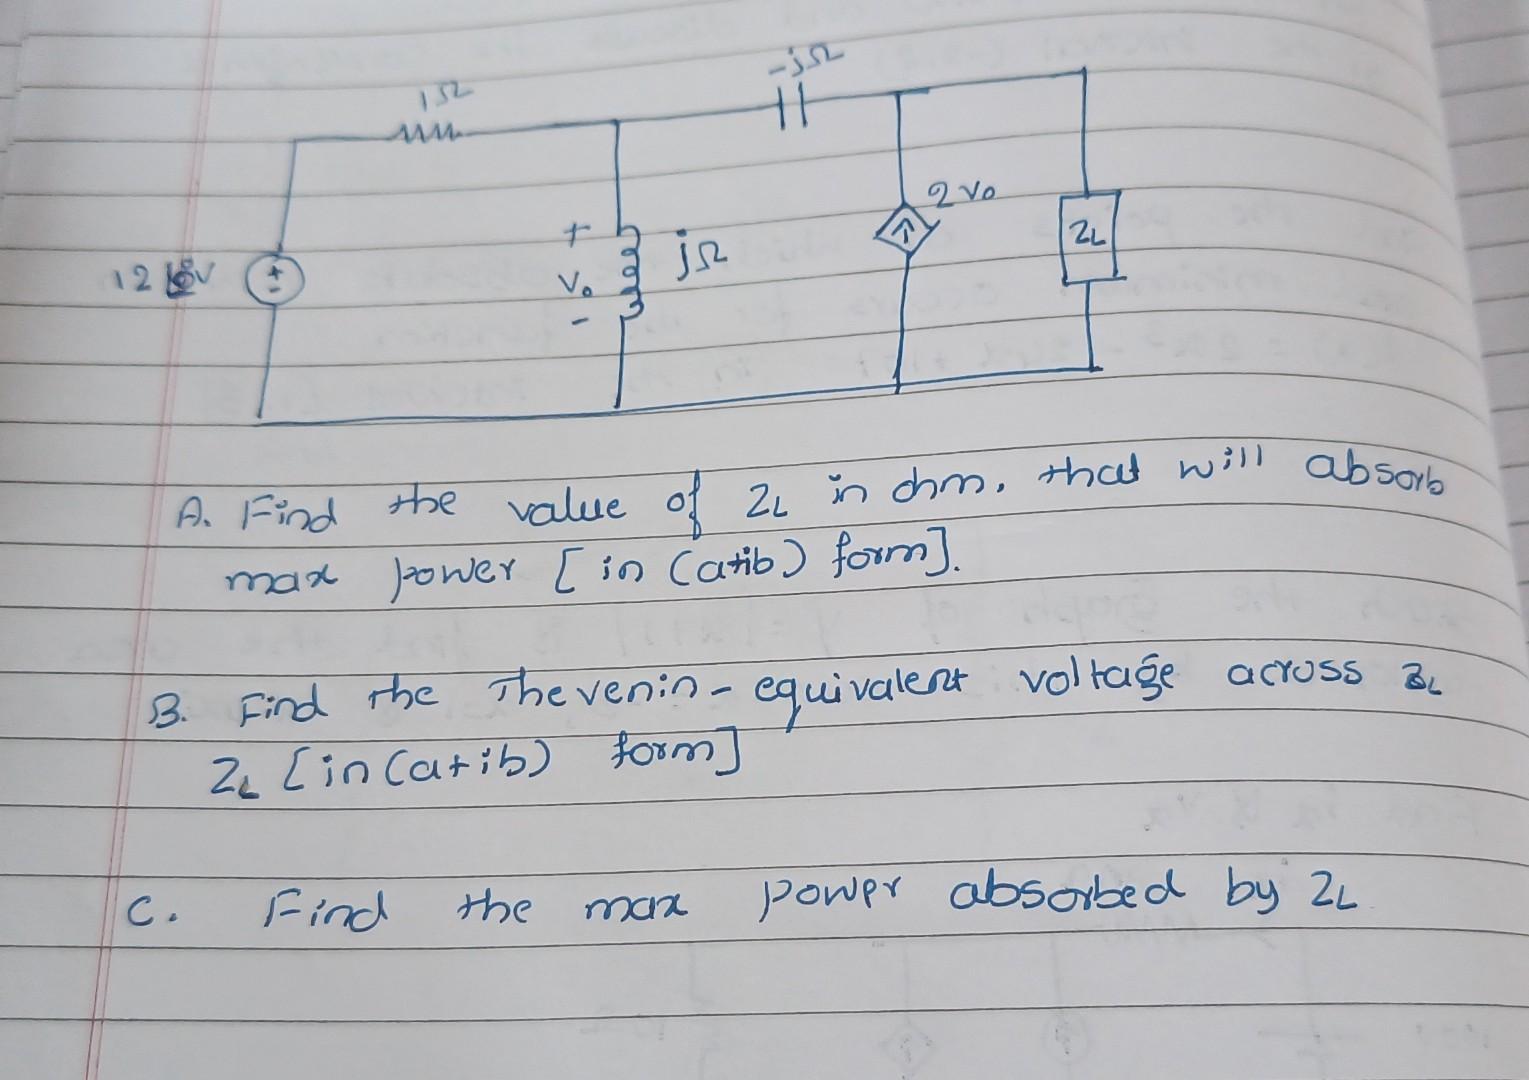 -jΩ
1Ω
2 V₀
+
jΩ
ZL
12 V
+
-
V₀
-
A. Find the value of ZL in ohm, that will absorb
max power [in (a+ib) form].
B. Find the Thevenin-equivalent voltage across
ZL [in (a+ib) form]
C. Find the max power absorbed by ZL